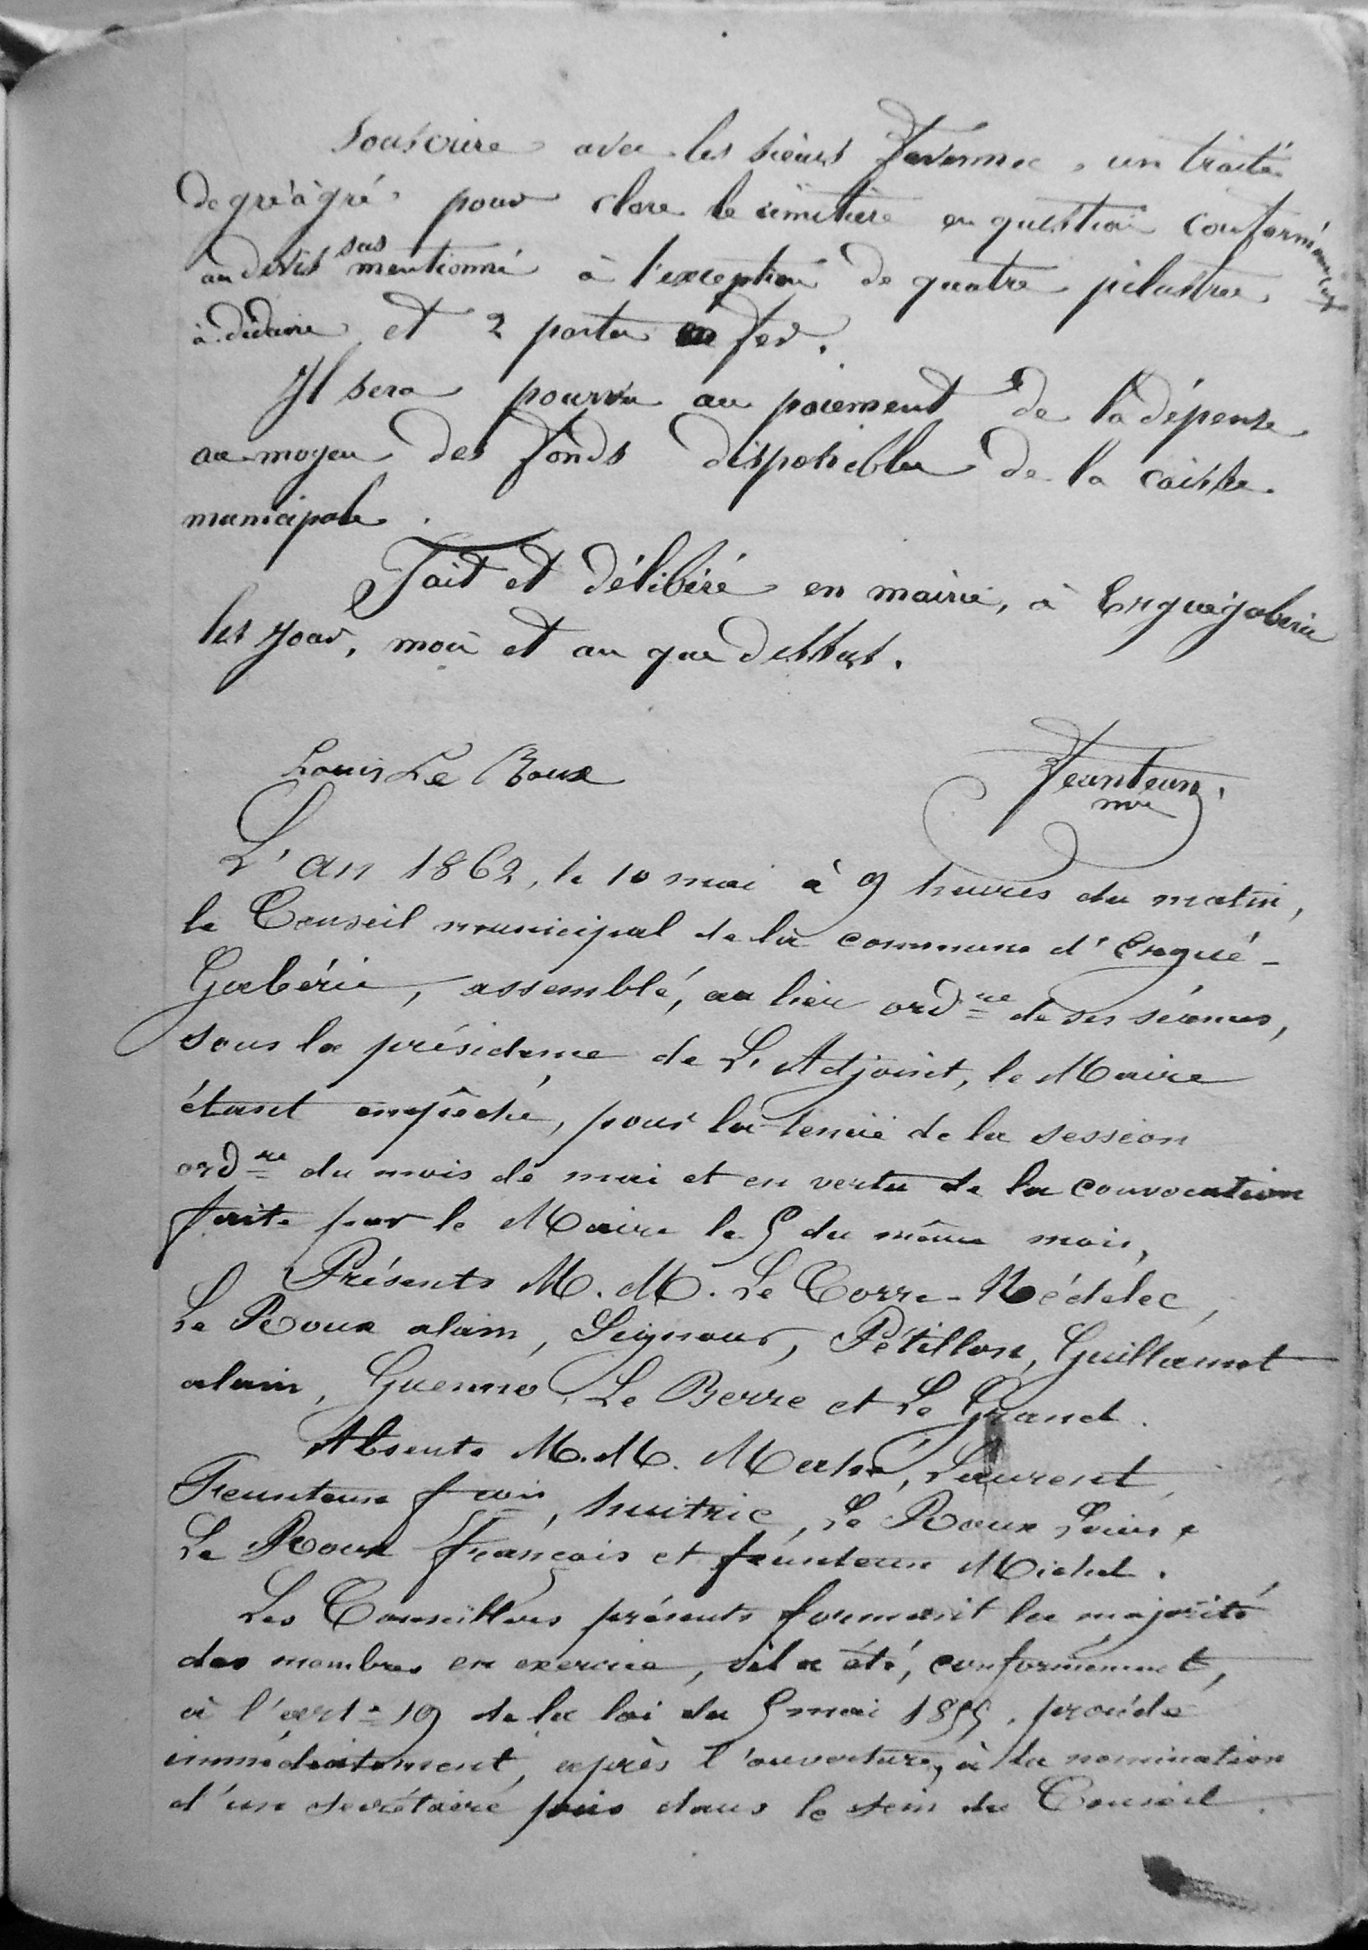 souscrire avec les sieurs Tavennec, un traité
de gré à gré pour clore le cimetière en question conformément
au devis sus mentionné à l'exception de quatre pilastres
à déduire et 2 portes en fer.
Il sera pourvu au paiement de la dépense
au moyen des fonds disponibles de la caisse
municipale.
Fait et délibéré en mairie, à Erguégabéric
les jour, mois et an que dessus.
Louis Le Roux
Feunteun
mre
L'an 1862, le 10 mai à 9 heures du matin,
le Conseil municipal de la commune d'Ergué-
Gabéric, assemblé, au lieu ordre de ses séances,
sous la présidence de L'Adjoint, le Maire
étant empêché, pour la tenue de la session
ordre du mois de mai et en vertu de la convocation
faite par le Maire le 5 du même mois,
Présents M.M. Le Corre-Nédélec,
Le Roux alain, Seignour, Pétillon, Guillamot
alain, Guenno, Le Berre et Le Grand.
Absents M.M. Mahé, Laurent,
Feunteun fçois, huitric, Le Roux Louis,
Le Roux françois et feunteun Michel.
Les Conseillers présents formant la majorité
des membres en exercice, il a été, conformément,
à l'art. 19 de la loi du 5 mai 1855, procédé
immédiatement, après l'ouverture, à la nomination
d'un secrétaire pris dans le sein du Conseil.